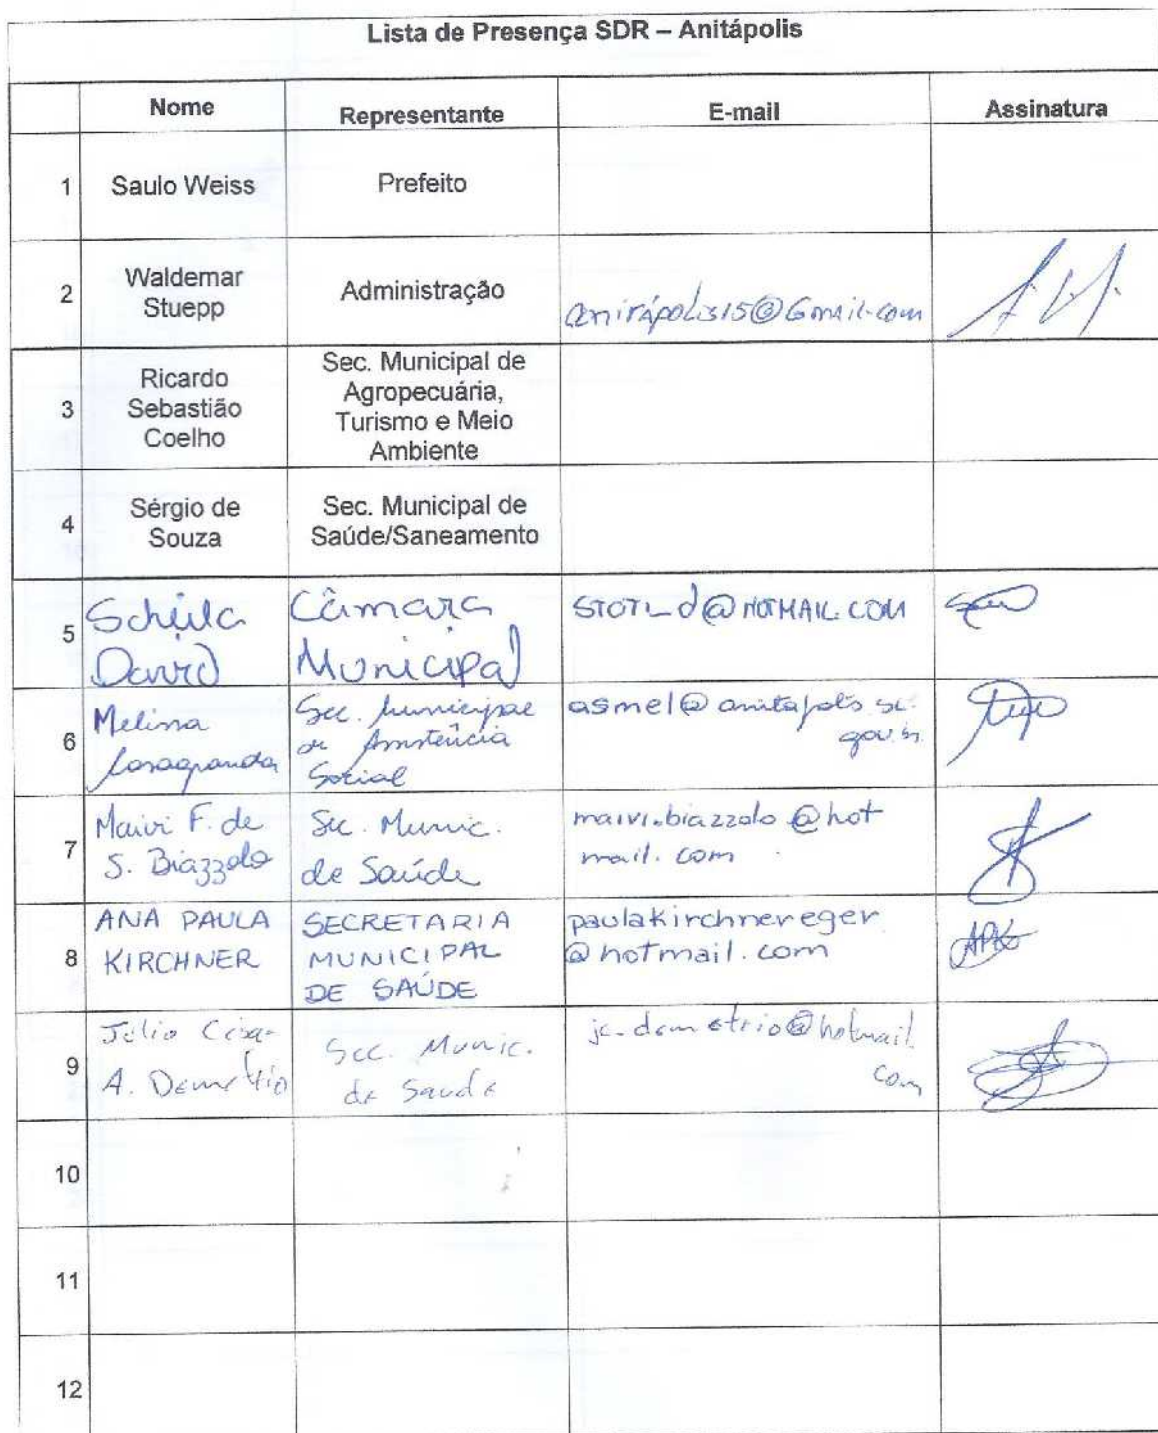 Lista de Presença SDR – Anitápolis
Nome Representante E-mail Assinatura
1 Saulo Weiss Prefeito
2 Waldemar Stuepp Administração anitápolis15@Gmail.com
3 Ricardo Sebastião Coelho Sec. Municipal de Agropecuária, Turismo e Meio Ambiente
4 Sérgio de Souza Sec. Municipal de Saúde/Saneamento
5 Scheila David Câmara Municipal @HOTMAIL.COM
6 Melina Casagranda Sec. Municipal de Assistência Social asmel@anitapolis.sc.gov.br
7 Maivi F. de S. Biazzolo Sec. Munic. de Saúde maivi.biazzolo@hot mail.com
8 ANA PAULA KIRCHNER SECRETARIA MUNICIPAL DE SAÚDE paulakirchnereger @hotmail.com
9 Júlio Cesar A. Demetrio Sec. Munic. de Saude jc-demetrio@hotmail. com
10
11
12